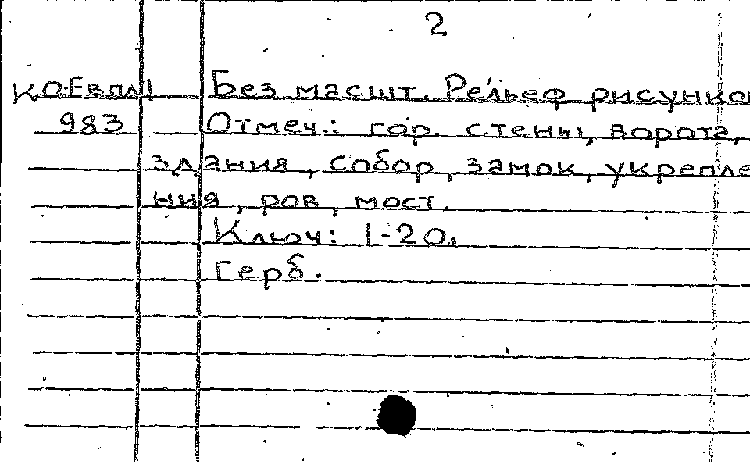 2
КО-Евпл1 Без масшт. Рельеф рисунко
983 Отмеч.: гор. стены, ворота,
здания, собор, замок, укрепле
ния, ров, мост.
Ключ: 1-20.
Герб.